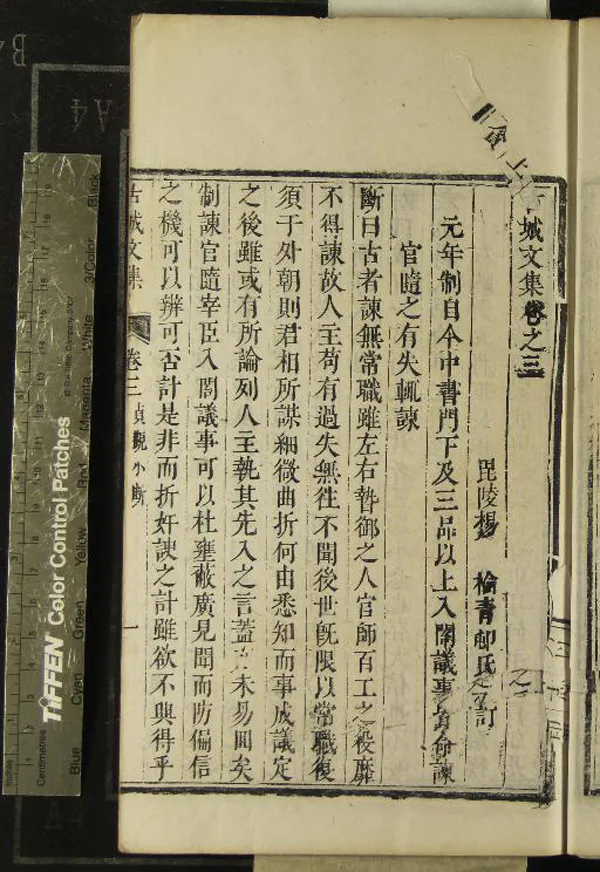 城文集卷之三
毘陵楊 檜青邮氏 訂
元年制自今中書門下及三品以上入閤議事皆命諫
官隨之有失輒諫
斷曰古者諫無常職雖左右暬御之人官師百工之役靡
不得諫故人主苟有過失無往不聞後世旣限以常職復
須于外朝則君相所謀細微曲折何由悉知而事成議定
之後雖或有所論列人主執其先入之言蓋亦未易回矣
制諫官隨宰臣入閤議事可以杜壅蔽廣見聞而防偏信
之機可以辨可否計是非而折奸諛之計雖欲不興得乎
古城文集 卷三 貞觀小斷 一
上
TIFFEN Color Control Patches
Blue Cyan Green Yellow Red Magenta White 3/Color Black
Centimetres
Inches
A4